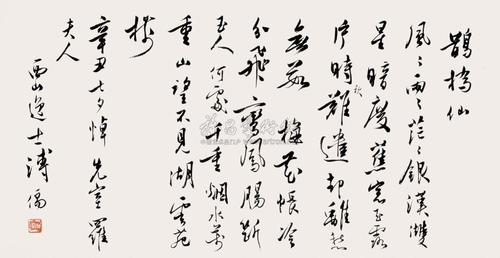 鵲橋仙
風々雨々茫々銀漢雙
星暗度蕉窗玉露
片時秋難遣却離愁
無數梅花帳冷
分飛鸞鳳腸斷
玉人何處千重烟水萬
重山望不見湖雲苑
樹
辛丑七夕悼先室羅
夫人
西山逸士溥儒